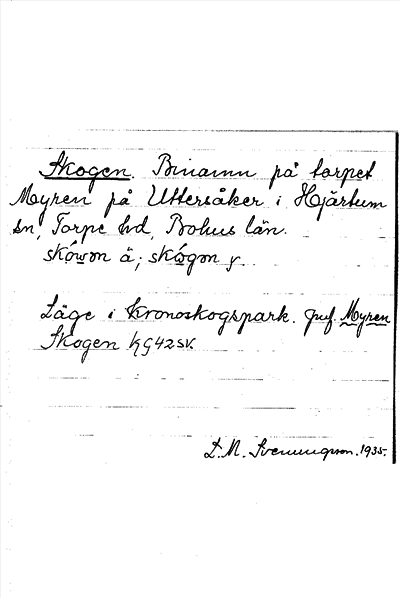 Skogen. Binamn på torpet
Myren på Uttersåker i Hjärtum
sn, Torpe hd, Bohus län.
skówon ä; skógon y
Läge i Kronoskogspark. Myren
Skogen 42 SV.
Svenungson. 1935.